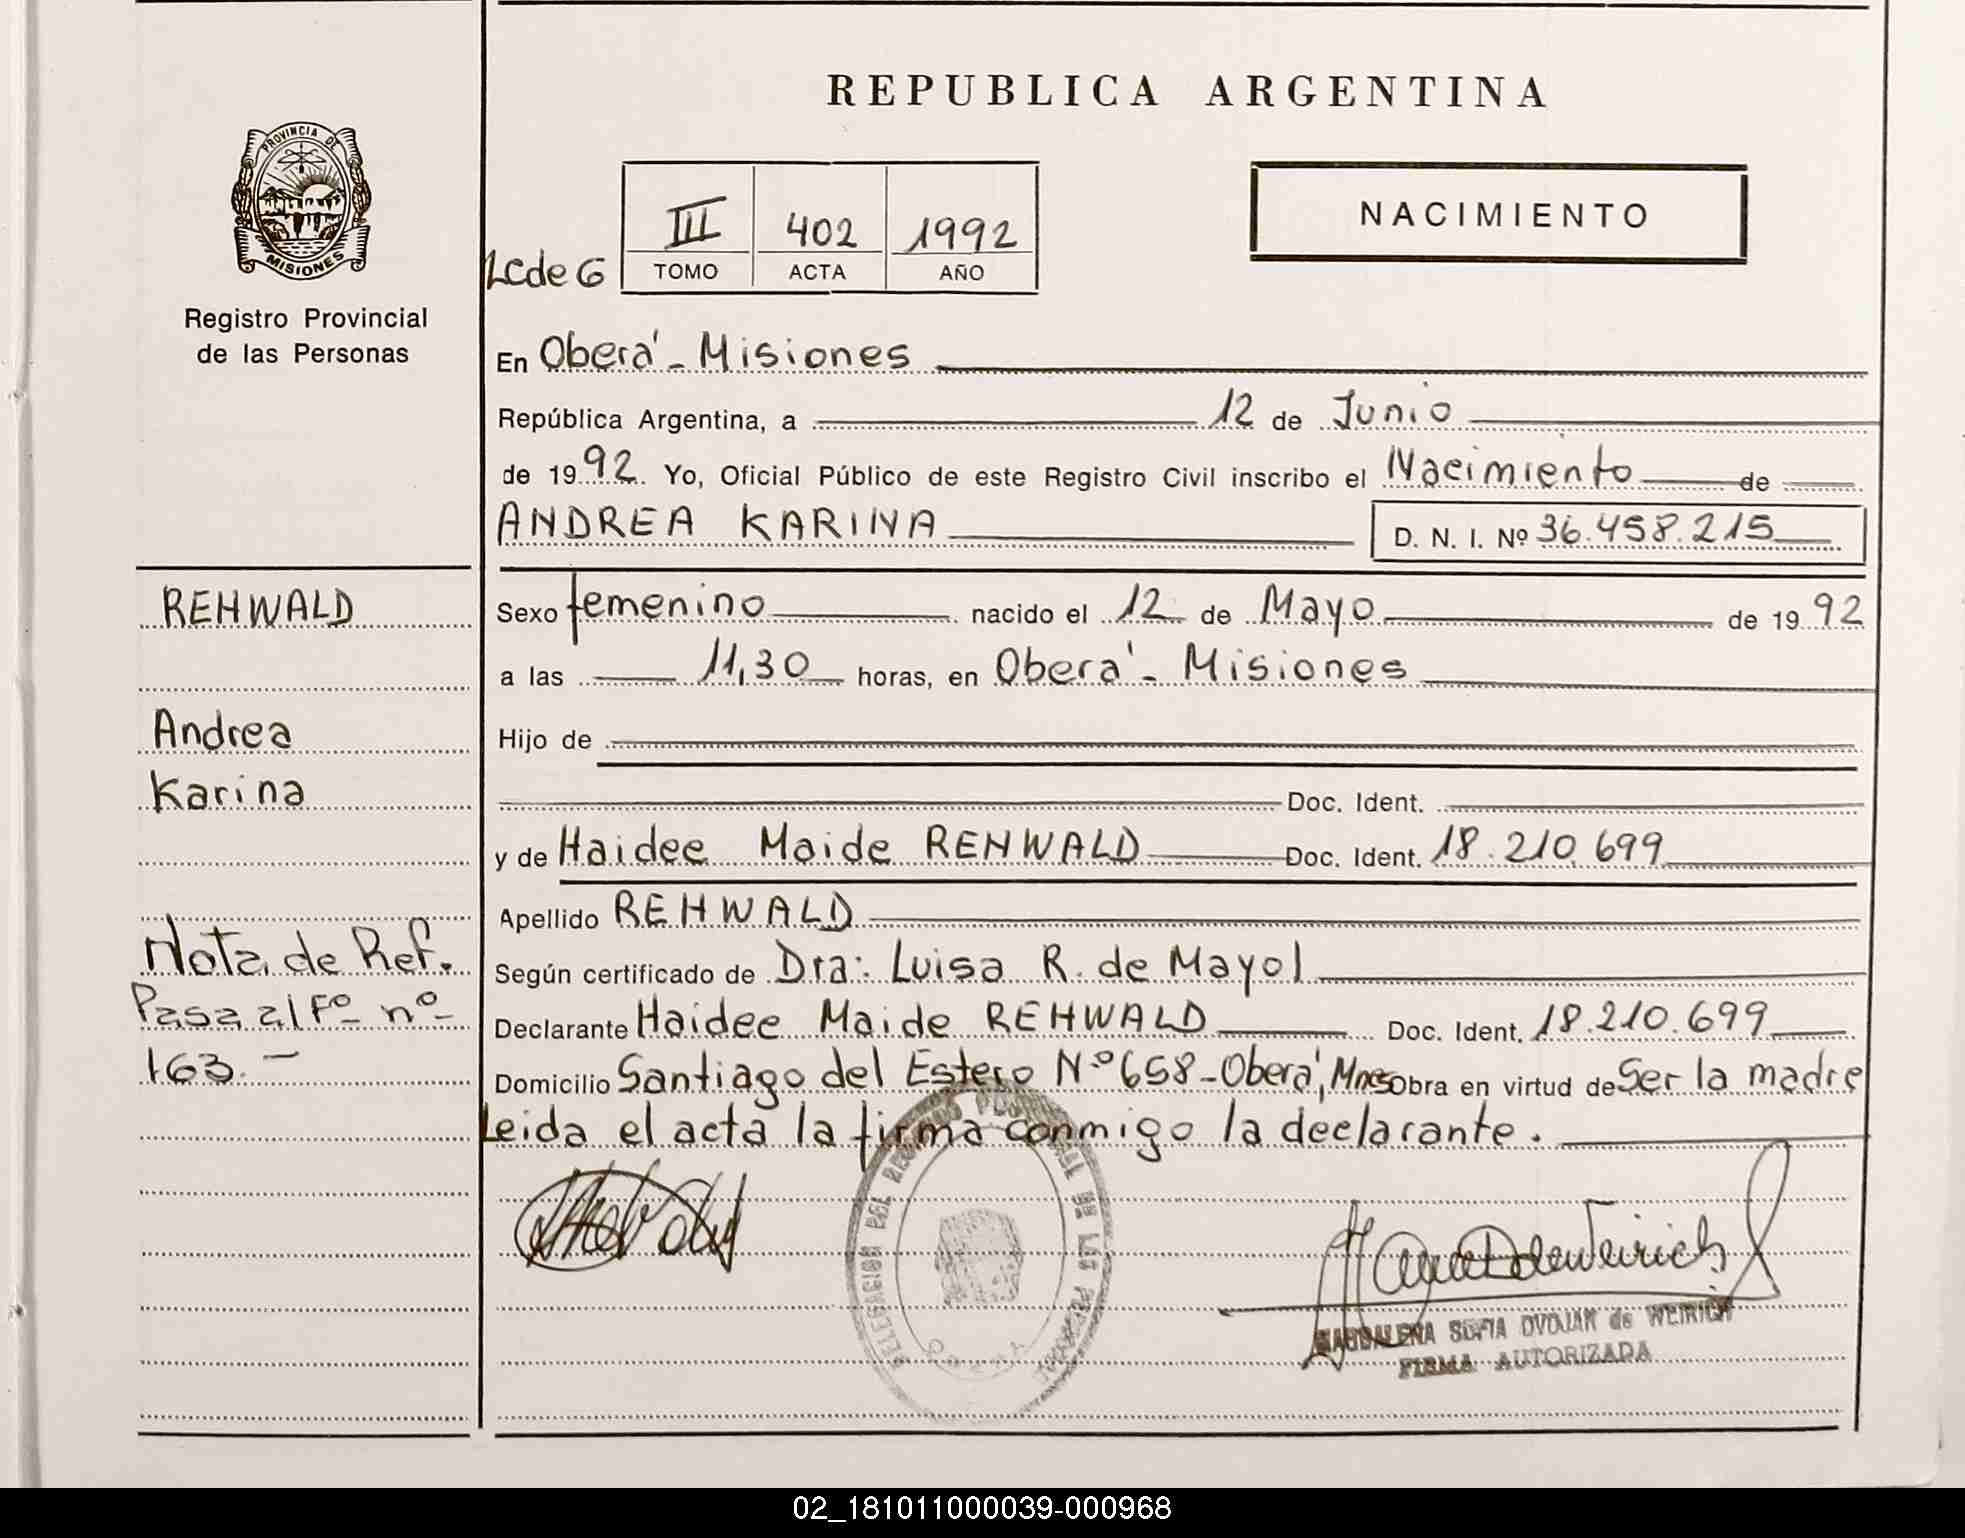 REPUBLICA ARGENTINA
PROVINCIA DE
MISIONES
Registro Provincial
de las Personas
NACIMIENTO
III 402 1992
Lcde G TOMO ACTA AÑO
En Oberá - Misiones
República Argentina, a 12 de Junio
de 1992. Yo, Oficial Público de este Registro Civil inscribo el Nacimiento de
ANDREA KARINA D. N. I. Nº 36.458.215
REHWALD
Sexo femenino nacido el 12 de Mayo de 1992
a las 11,30 horas, en Oberá - Misiones
Andrea
Karina
Hijo de
Doc. Ident.
y de Haidee Maide REHWALD Doc. Ident. 18.210.699
Apellido REHWALD
Nota de Ref.
Pasa al Fº nº
163.-
Según certificado de Dra: Luisa R. de Mayol
Declarante Haidee Maide REHWALD Doc. Ident. 18.210.699
Domicilio Santiago del Estero Nº 658 - Oberá, Mnes Obra en virtud de Ser la madre
Leida el acta la firma conmigo la declarante.
DELEGACION DEL REGISTRO PROVINCIAL DE LAS PERSONAS
OBERA
MAGDALENA SOFIA DVOJAK de WEIRICH
FIRMA AUTORIZADA
02_181011000039-000968